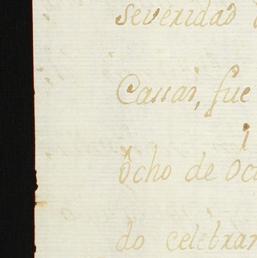 Severidad
Casas, fue
Ocho de Oc
do celebrar